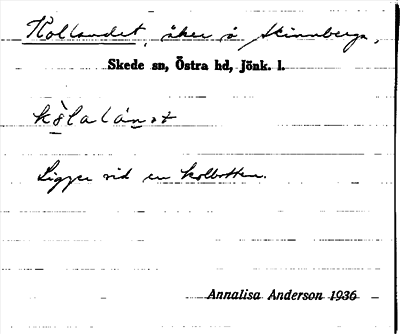 Kollandet, åker å Skinnberga,
Skede sn, Östra hd, Jönk. l.
Ligger vid en kolbotten.
Annalisa Anderson 1936